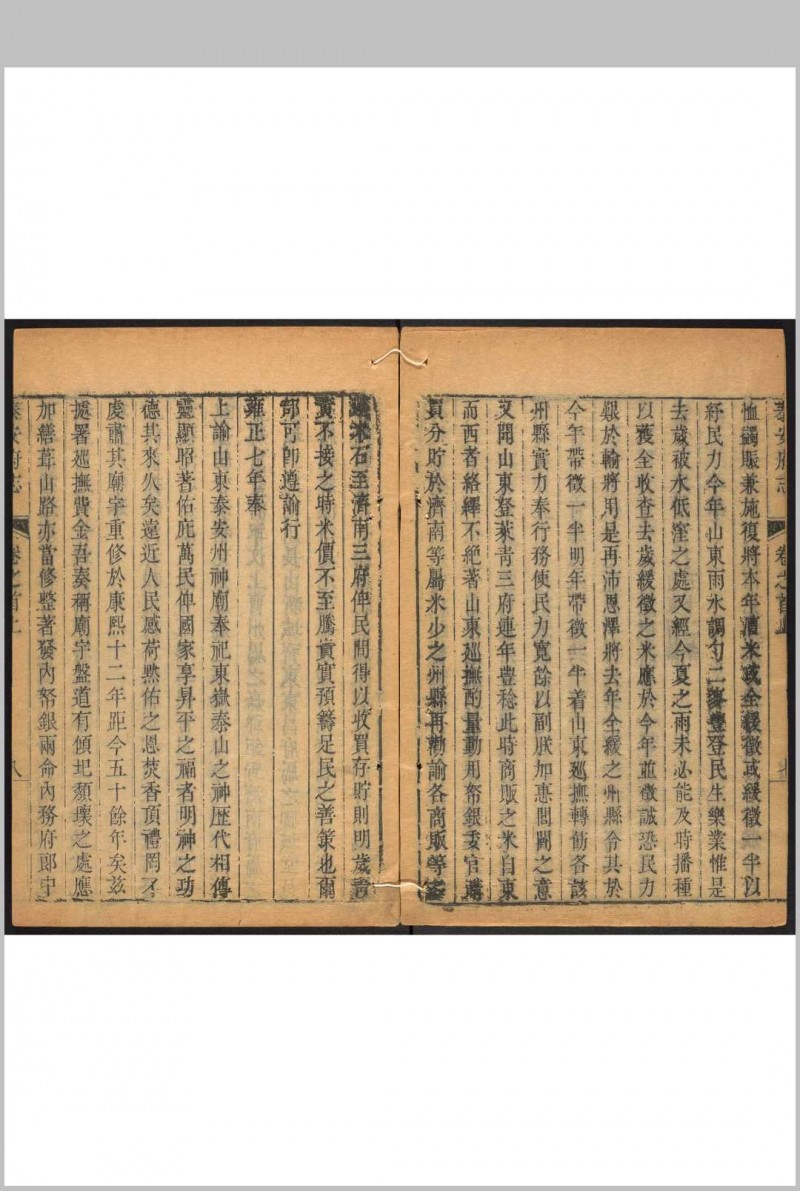 泰安府志 卷之首上
恤蠲賑兼施復將本年漕米或全緩徵或緩徵一半以
紓民力今年山東雨水調勻二麥豐登民生樂業惟是
去歲被水低窪之處又經今夏之雨未必能及時播種
以獲全收查去歲緩徵之米應於今年並徵誠恐民力
艱於輸將用是再沛恩澤將去年全緩之州縣令其於
今年帶徵一半明年帶徵一半着山東廵撫轉飭各該
州縣實力奉行務使民力寬餘以副朕加惠閭閻之意
又聞山東登萊青三府連年豐稔此時商販之米自東
而西者絡繹不絶著山東廵撫酌量動用帑銀委官購
買分貯於濟南等屬米少之州縣再勸諭各商販等
米石至濟南三府俾民間得以收買存貯則明歲青
黃不接之時米價不至騰貴實預籌足民之善策也爾
部可卽遵諭行
雍正七年奉
上諭山東泰安州神廟奉祀東嶽泰山之神歴代相傳
靈顯昭著佑庇萬民俾國家享昇平之福者明神之功
德其來久矣遠近人民感荷默佑之恩焚香頂禮罔不
虔肅其廟宇重修於康熙十二年距今五十餘年矣兹
據署廵撫費金吾奏稱廟宇盤道有傾圮頹壞之處應
加繕葺山路亦當修整著發內帑銀兩命內務府郎中
泰安府志 卷之首上 八